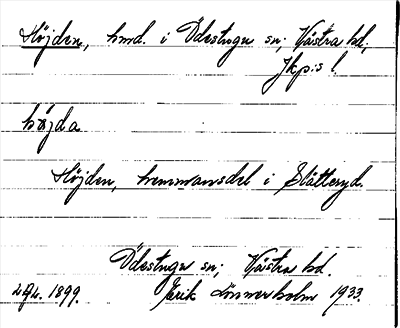 Höjden, hmd. i Ödestugu sn; Västra hd,
Jkp:s l.
höjda
Höjden, hemmansdel i Slätteryd.
Ödestugu sn; Västra hd.
1899. Erik Linnerholm 1933.